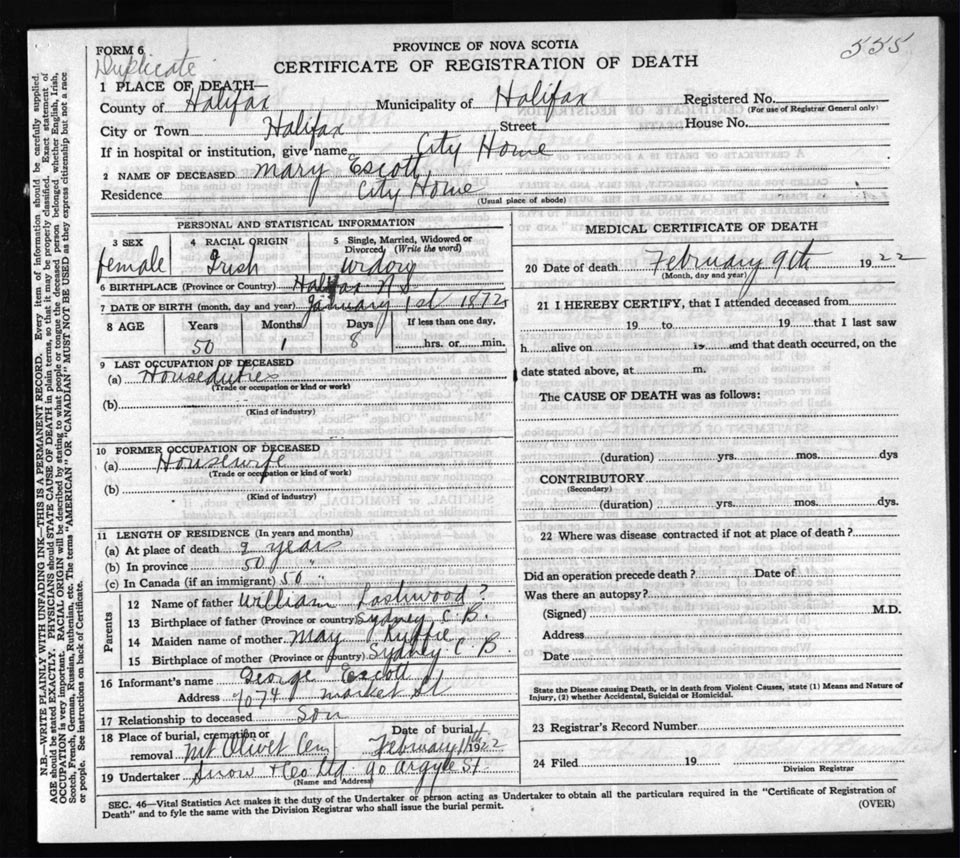 PROVINCE OF NOVA SCOTIA
555
FORM 6
CERTIFICATE OF REGISTRATION OF DEATH
Duplicate
1 PLACE OF DEATH—
County of Halifax Municipality of Halifax Registered No.
(For use of Registrar General only)
City or Town Halifax Street House No.
If in hospital or institution, give name City Home
2 NAME OF DECEASED Mary Escott
Residence City Home
(Usual place of abode)
PERSONAL AND STATISTICAL INFORMATION
3 SEX 4 RACIAL ORIGIN 5 Single, Married, Widowed or Divorced, (Write the word)
female Irish widow
6 BIRTHPLACE (Province or Country) Halifax N.S.
7 DATE OF BIRTH (month, day and year) January 1st 1872
8 AGE Years Months Days If less than one day,
50 1 8 hrs. or min.
9 LAST OCCUPATION OF DECEASED
(a) Houseduties
(Trade or occupation or kind or work)
(b)
(Kind of industry)
10 FORMER OCCUPATION OF DECEASED
(a) Housewife
(Trade or occupation or kind of work)
(b)
(Kind of industry)
11 LENGTH OF RESIDENCE (In years and months)
(a) At place of death 9 years
(b) In province 50 "
(c) In Canada (if an immigrant) 50 "
Parents
12 Name of father William Lashwood ?
13 Birthplace of father (Province or country) Sydney C. B.
14 Maiden name of mother May
15 Birthplace of mother (Province or country) Sydney C. B.
16 Informant's name George Escott
Address Market St
17 Relationship to deceased Son
18 Place of burial, cremation or removal Mt Olivet Cem
Date of burial February 11th 1922
19 Undertaker Snow & Co Ltd. 90 Argyle St.
(Name and Address)
MEDICAL CERTIFICATE OF DEATH
20 Date of death February 9th 1922
(Month, day and year)
21 I HEREBY CERTIFY, that I attended deceased from
19 to 19 that I last saw
h alive on 19 and that death occurred, on the
date stated above, at m.
The CAUSE OF DEATH was as follows:
(duration) yrs. mos. dys
CONTRIBUTORY
(Secondary)
(duration) yrs. mos. dys.
22 Where was disease contracted if not at place of death?
Did an operation precede death? Date of
Was there an autopsy?
(Signed) M.D.
Address
Date
State the Disease causing Death, or in death from Violent Causes, state (1) Means and Nature of
Injury, (2) whether Accidental, Suicidal or Homicidal.
23 Registrar's Record Number
24 Filed 19
Division Registrar
SEC. 46—Vital Statistics Act makes it the duty of the Undertaker or person acting as Undertaker to obtain all the particulars required in the "Certificate of Registration of
Death" and to fyle the same with the Division Registrar who shall issue the burial permit.
(OVER)
N.B.—WRITE PLAINLY WITH UNFADING INK—THIS IS A PERMANENT RECORD. Every item of information should be carefully supplied.
AGE should be stated EXACTLY. PHYSICIANS should STATE CAUSE OF DEATH in plain terms, so that it may be properly classified. Exact statement of
OCCUPATION is very important. RACIAL ORIGIN will be described by stating what people or tongue the deceased person belonged, whether English, Irish,
Scotch, French, German, Russian, Ruthenian, etc. The terms "AMERICAN" OR "CANADIAN" MUST NOT BE USED as they express citizenship but not a race
or people. See instructions on back of Certificate.